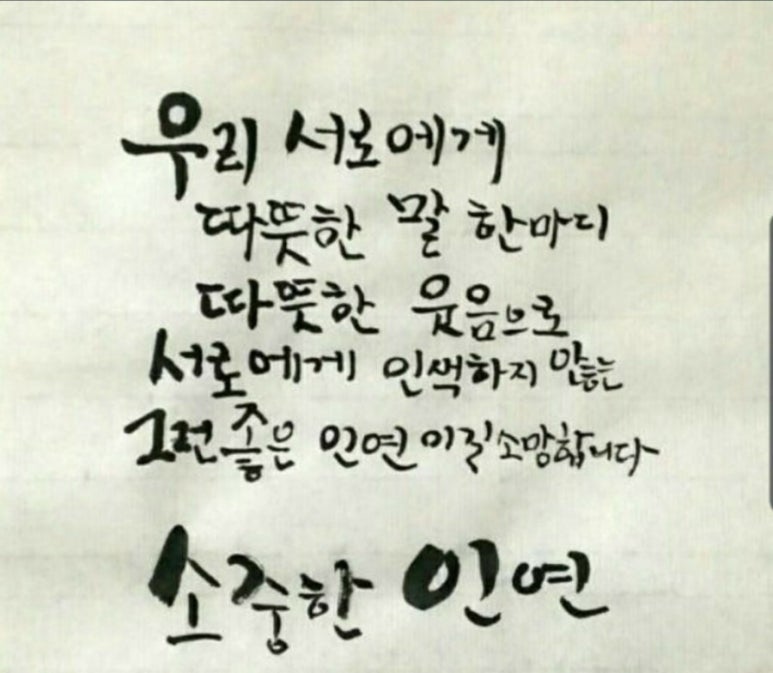 우리 서로에게
따뜻한 말 한마디
따뜻한 웃음으로
서로에게 인색하지 않는
그런 좋은 인연이길 소망합니다
소중한 인연